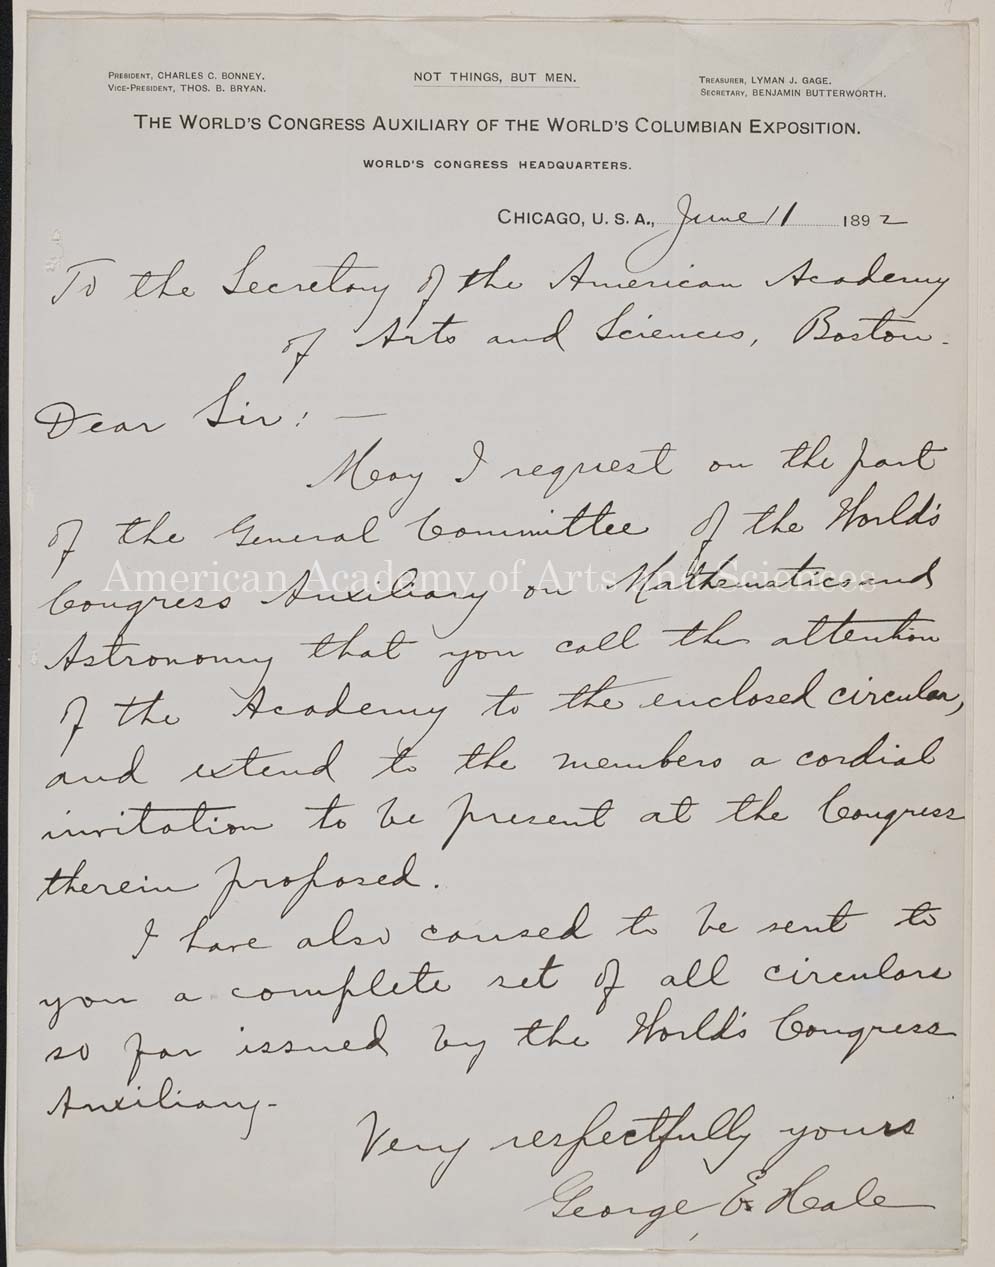 PRESIDENT, CHARLES C. BONNEY.
VICE-PRESIDENT, THOS. B. BRYAN.
NOT THINGS, BUT MEN.
TREASURER, LYMAN J. GAGE.
SECRETARY, BENJAMIN BUTTERWORTH.
THE WORLD'S CONGRESS AUXILIARY OF THE WORLD'S COLUMBIAN EXPOSITION.
WORLD'S CONGRESS HEADQUARTERS.
CHICAGO, U. S. A., June 11 1892
To the Secretary of the American Academy
of Arts and Sciences, Boston.
Dear Sir: —
May I request on the part
of the General Committee of the World's
Congress Auxiliary on Mathematics and
American Academy of Arts and Sciences
Astronomy that you call the attention
of the Academy to the enclosed circular,
and extend to the members a cordial
invitation to be present at the Congress
therein proposed.
I have also caused to be sent to
you a complete set of all circulars
so far issued by the World's Congress
Auxiliary.
Very respectfully yours
George E. Hale